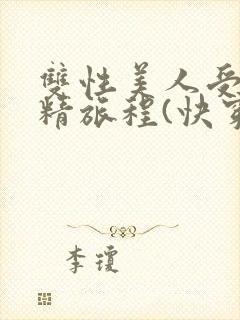 雙性美人受
精旅程(快
李瓊